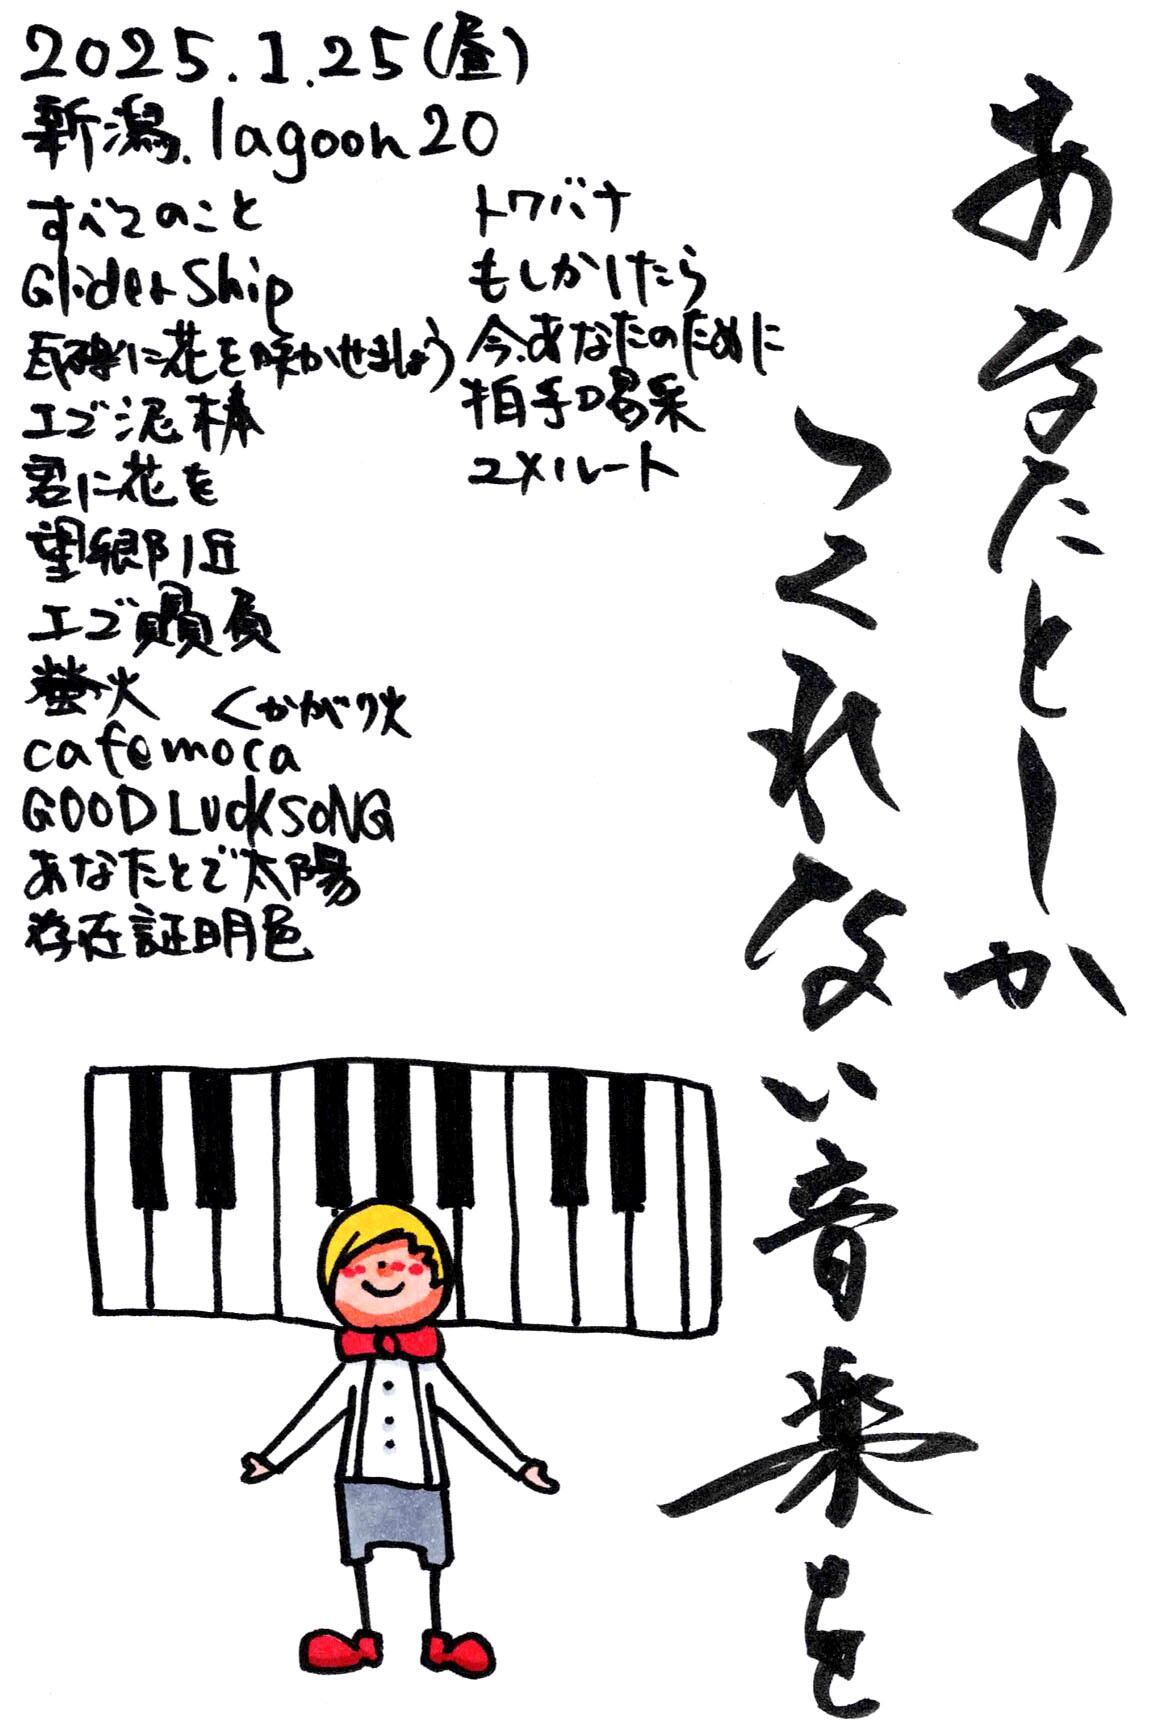 2025.1.25(昼)
新潟.lagoon20
すべてのこと
GliderShip
瓦礫に花を咲かせましょう
エゴ泥棒
君に花を
望郷附近
エゴ贔屓
螢火 くかがり火
cafe mora
GOOD LUCK SONG
あなたとで太陽
存在証明色
トワバナ
もしかしたら
今、あなたのために
拍手喝采
ユメルート
あなたとしか
つくれない音楽を